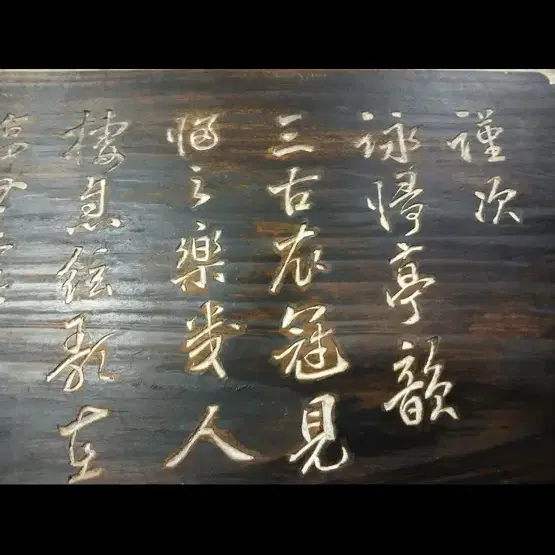 謹次
詠歸亭韻
三古衣冠見
之樂幾人
棲息絃歌在